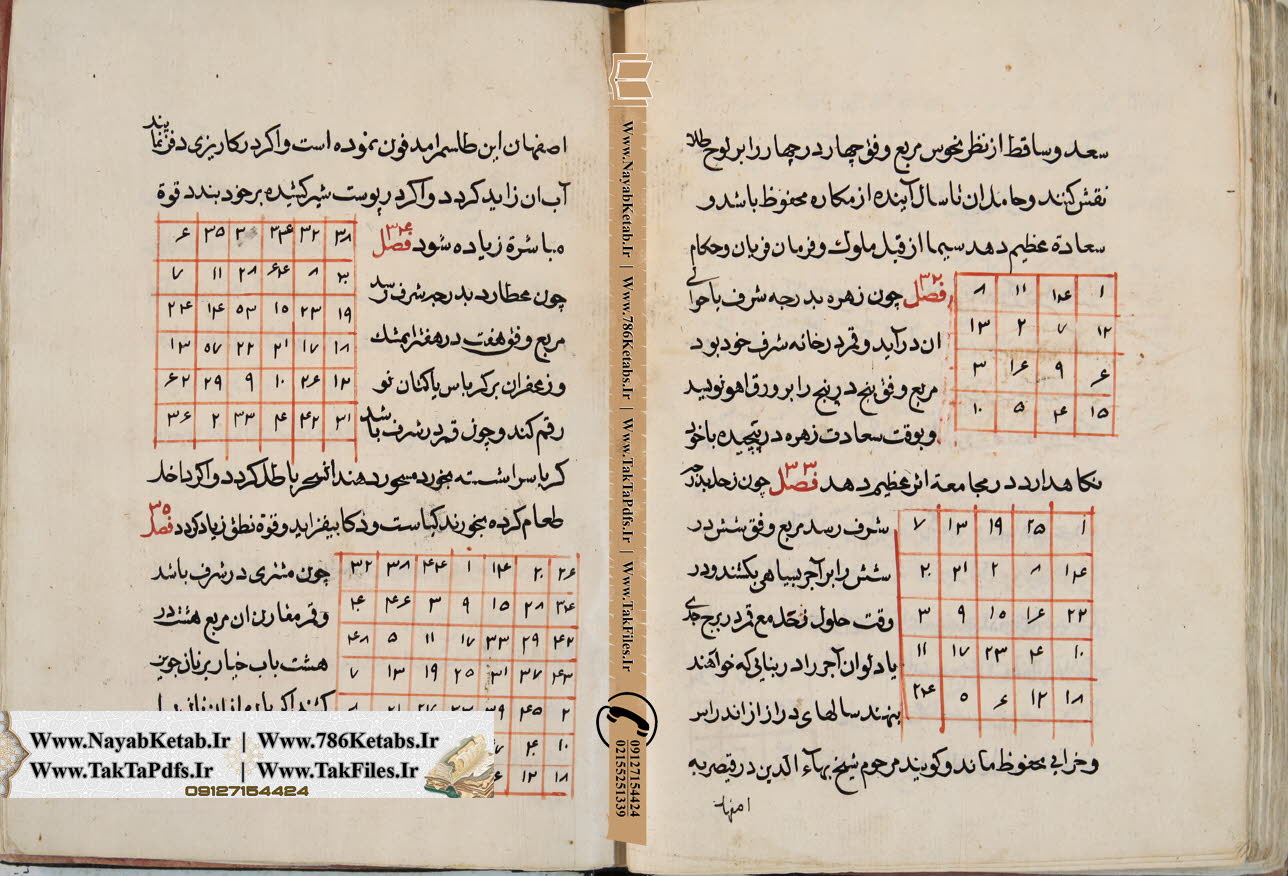 سعد و ساقط از نظر نحوس مربع وفق چهار در چهار را بر لوح طلا
نقش کنند و حامل ان تا سال آینده از مکاره محفوظ باشد و
سعادة عظیم دهد سیما از قبل ملوک و فرمان فرمایان و حکام
فصل ۳۲ چون زهره بدرجه شرف یا
ان در آید و قمر در خانه شرف خود بود
مربع وفق پنج در پنج را بر ورق اهو نویسد
و بوقت سعادت زهره در پیچیده با خود
نکاهدارد در مجامعة اثر عظیم دهد فصل ۳۳ چون زحل بدرجه
شرف رسد مربع وفق شش در
شش را بر آجر بسیاهی بکشند و در
وقت حلول زحل مع قمر در برج جدی
یا دلو ان آجر را در بنایی که خواهند
بنهند سالهای دراز از اندراس
و خرابی محفوظ ماند و کویند مرحوم شیخ بهاء الدین در قیصریه
اصفهان
۱ ۱۴ ۱۱ ۸
۱۲ ۷ ۲ ۱۳
۶ ۹ ۱۶ ۳
۱۵ ۴ ۵ ۱۰
۱ ۲۵ ۱۹ ۱۳ ۷
۱۴ ۸ ۲ ۲۱ ۲۰
۲۲ ۱۶ ۱۵ ۹ ۳
۱۰ ۴ ۲۳ ۱۷ ۱۱
۱۸ ۱۲ ۶ ۵ ۲۴
اصفهان این طلسم را مدفون نموده است و اکر در کاریزی دفن نمایند
آب ان زاید کردد و اکر در پوست شیر کشیده بر خود بندد قوة
مباشرة زیاده شود فصل ۳۴
چون عطارد بدرجه شرف رسد
مربع وفق هفت در هفت را بمشک
و زعفران بر کرباس یا کتان نو
رقم کند و چون قمر در شرف باشد
کرباس را شسته بخورد مسحور دهند اثر سحر باطل کردد و اکر داخل
طعام کرده بخورند کیاست و ذکا بیفزاید و قوة نطق زیاد کردد فصل ۳۵
چون مشتری در شرف باشد
و قمر مقارن ان مربع هشت در
هشت باب خیار بر نان جوین
۳۸ ۳۲ ۳۴ ۳۰ ۳۵ ۶
۲۰ ۸ ۶۴ ۲۸ ۱۱ ۷
۱۹ ۲۳ ۱۵ ۵۳ ۱۴ ۲۴
۱۸ ۱۷ ۲۱ ۲۲ ۵۷ ۱۳
۱۲ ۲۶ ۱۰ ۹ ۲۹ ۶۲
۲۱ ۴۲ ۴ ۳۳ ۲ ۳۶
۲۶ ۲۰ ۱۴ ۱ ۴۴ ۳۸ ۳۲
۳۴ ۲۸ ۱۵ ۹ ۳ ۴۶ ۴۰
۴۲ ۲۹ ۳۳ ۱۷ ۱۱ ۵ ۴۸
۴۳ ۳۷ ۳۱ ۲۵ ۱۹ ۱۳ ۷
۲ ۴۵ ۳۹
۱۰ ۴
۱۸ ۱۲ ۶
Www.NayabKetab.Ir | Www.786Ketabs.Ir | Www.TakTaPdfs.Ir | Www.TakFiles.Ir
09127154424
02155251339
Www.NayabKetab.Ir | Www.786Ketabs.Ir
Www.TakTaPdfs.Ir | Www.TakFiles.Ir
09127154424